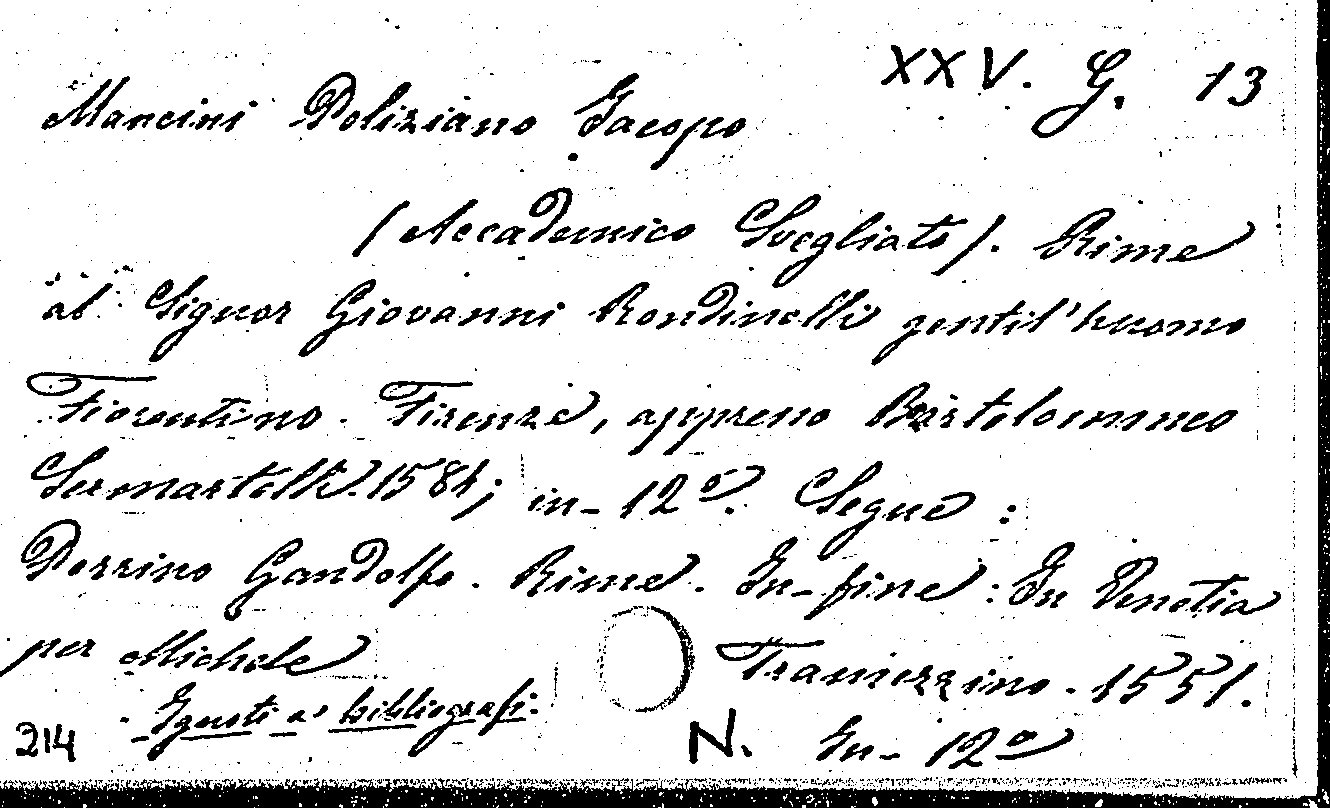 XXV. G. 13
Mancini Poliziano Jacopo
(Accademico Svegliato). Rime
al Signor Giovanni Rondinelli gentil'huomo
Fiorentino. Firenze, appresso Bartolommeo
Sermartelli. 1584; in-12º. Segue:
Porrino Gandolfo. Rime. In-fine: In Venetia
per Michele Tramezzino. 1551.
Ignoti a' bibliografi.
214 N. In-12º